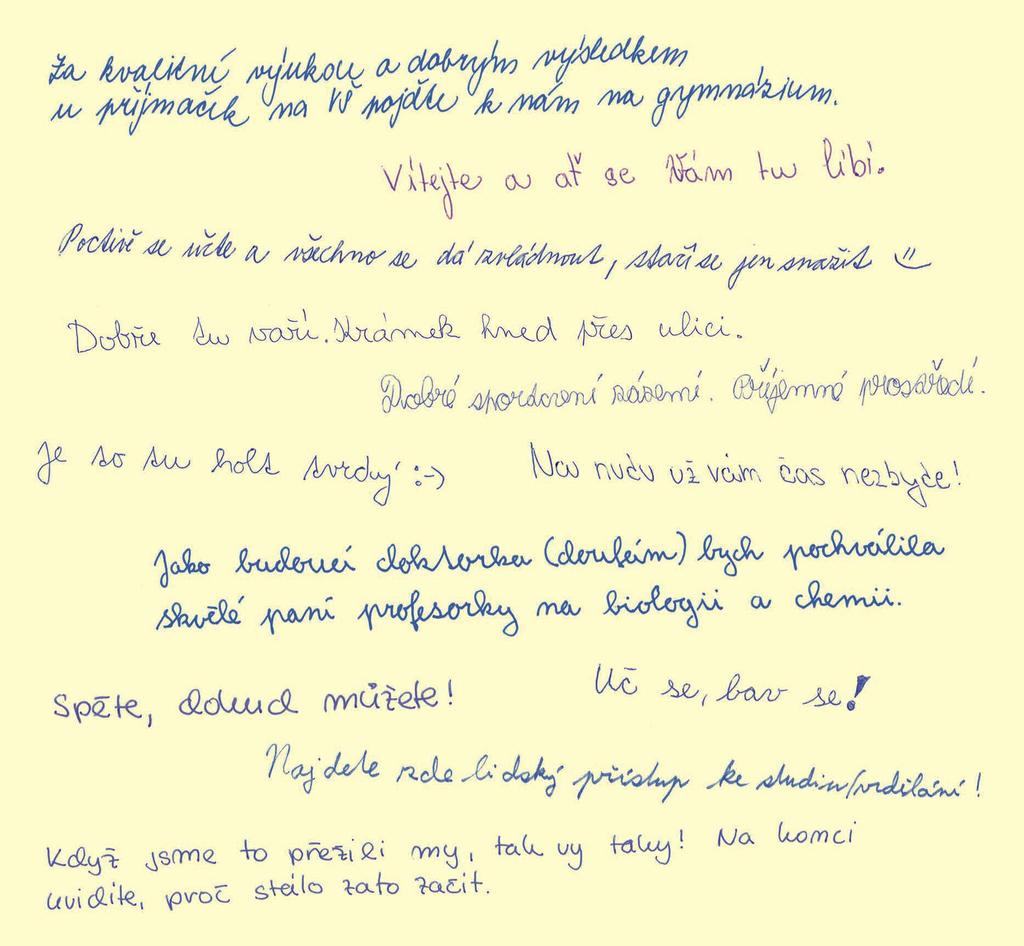 Za kvalitní výukou a dobrým výsledkem
u přijímaček na VŠ pojďte k nám na gymnázium.
Vítejte a ať se Vám tu líbí.
Poctivě se učte a všechno se dá zvládnout, stačí se jen snažit :)
Dobře tu vaří. Krámek hned přes ulici.
Dobré sportovní zázemí. Příjemné prostředí.
Je to tu holt tvrdý :-) Na nudu už vám čas nezbyde!
Jako budoucí doktorka (doufám) bych pochválila
skvělé paní profesorky na biologii a chemii.
Spěte, dokud můžete! Uč se, bav se!
Najdete zde lidský přístup ke studiu/vzdělání!
Když jsme to přežili my, tak vy taky! Na konci
uvidíte, proč stálo zato začít.